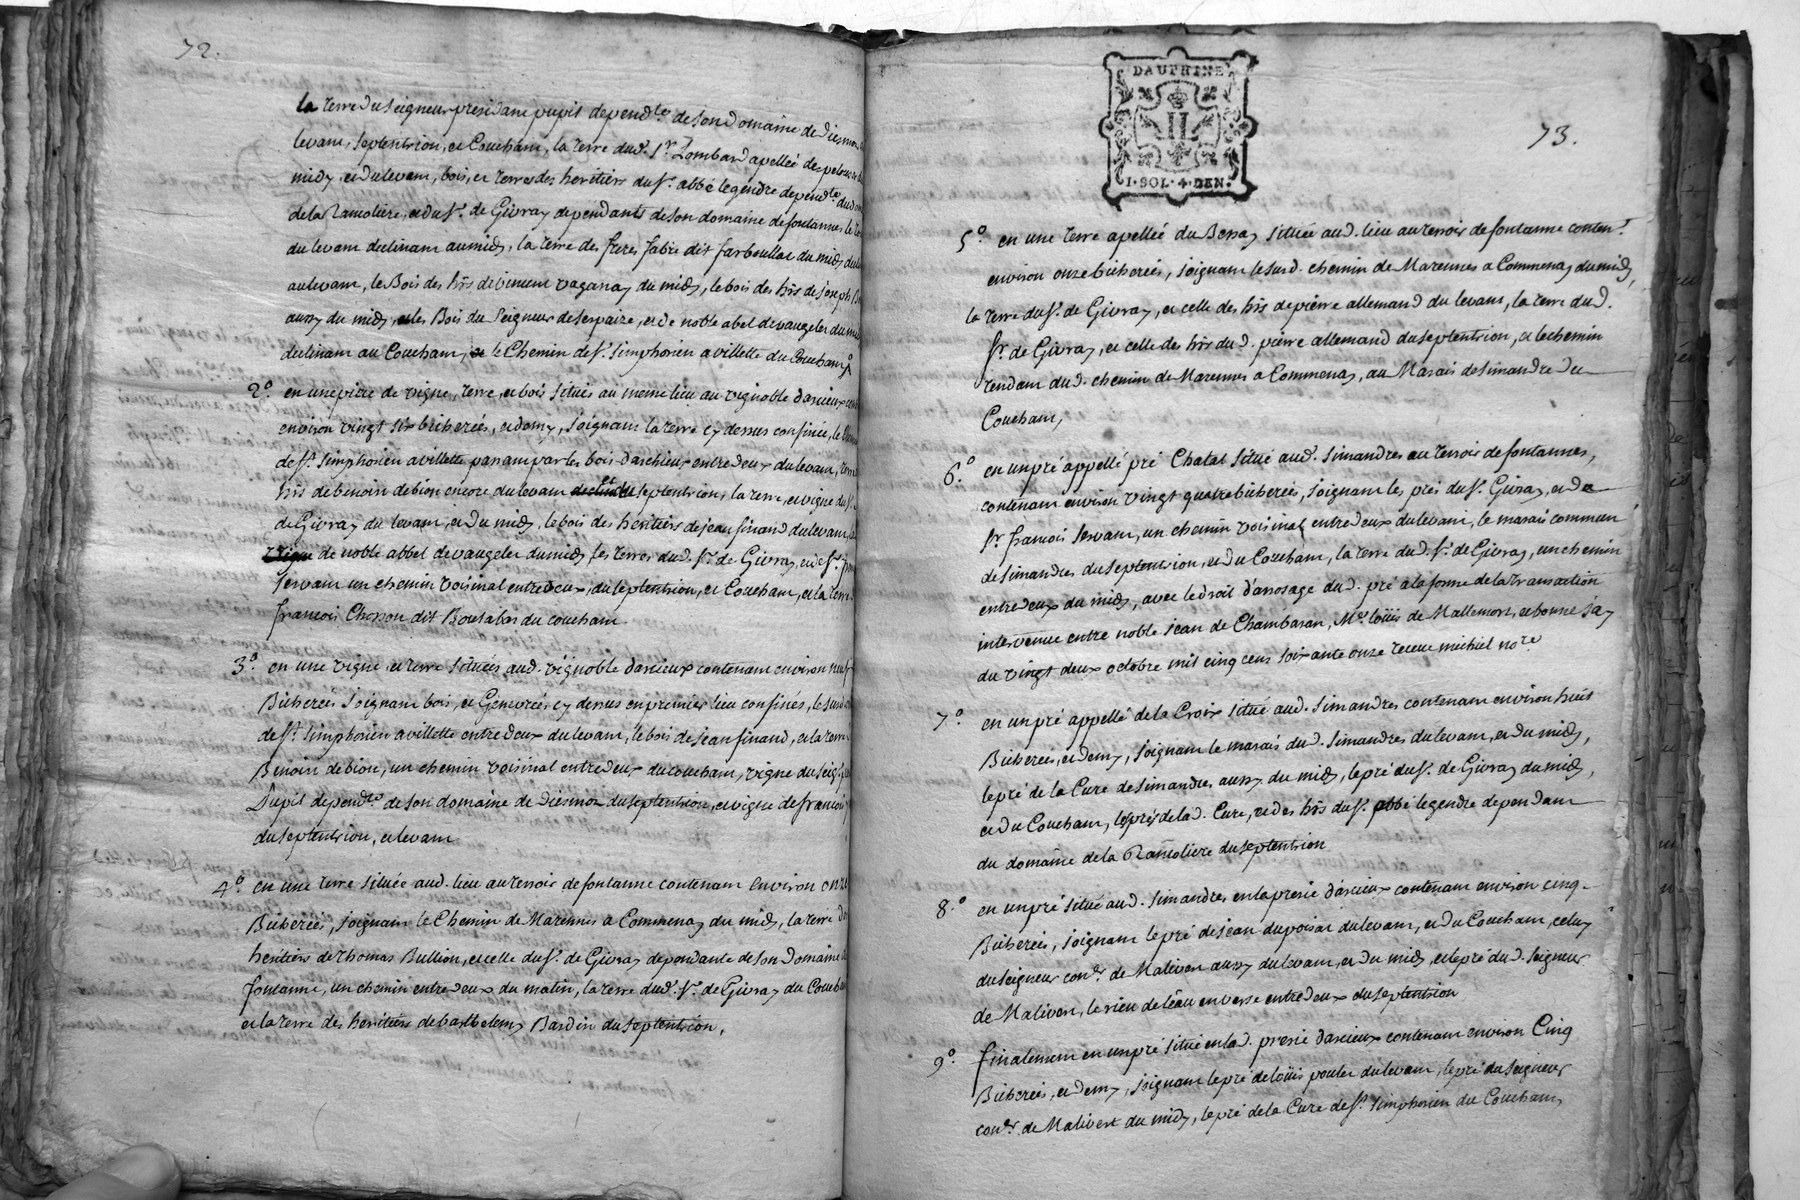 72.
la terre du seigneur president pupil depend.te de son domaine de diesmoz
levant, septentrion, et Couchant, la terre dud. S.r Lombard apellée
midy, et du levant, bois, et terres des heritiers du S.r abbé legendre depend.te du
de la Ramoliere, et du S.r de Givray dependants de son domaine de fontannes le
du levant declinant au midy, la terre des freres fabre dit farboullat du midy
au levant, le Bois des hrs de vincent vaganay du midy, le bois des hrs de joseph
aussy du midy, et les Bois du Seigneur de serpaize, et de noble abel de vaugelet du
declinant au Couchant, et le Chemin de S.t Simphorien a villette du Couchant
2.° en une piece de vigne, terre, et bois situés au meme lieu au vignoble d'arcieux
environ vingt six bicherées, et demy, joignant la terre cy dessus confinée, le
de S.t Simphorien a villette passant par les bois d'archieux entre deux du levant,
hrs de benoit debion encore du levant et du septentrion, la terre, et vigne du S.r
de Givray du levant, et du midy, le bois des heritiers de jean finand du levant,
vigne de noble abbel de vaugelet du midy les terres dud. S.r de Givray, et de S.r
servant un chemin voisinal entre deux, du septentrion, et Couchant, et la terre
francois Chosson dit Boutabas du couchant
3.° en une vigne, et terre situées aud. vignoble d'arcieux contenant environ neuf
Bicherées joignant bois, et Genevrée cy dessus en premier lieu confinés, le
de S.t Simphorien a villette entre deux du levant, le bois de jean finand, et la terre
Benoit debion, un chemin voisinal entre deux du couchant, vigne du seig.r
Pupil depend.te de son domaine de Diesmoz du septentrion, et vigne de francois
du septentrion, et levant
4.° en une terre située aud. lieu au terroir de fontanne contenant environ onze
Bicherées, joignant le Chemin de Marennes a Commenay du midy, la terre
heritiers de thomas Bullion, et celle du S.r de Givray dependante de son Domaine
fontanne, un chemin entre deux du matin, la terre dud. S.r de Givray du
et la terre des heritiers de barthelemy Bardin du septentrion,
DAUPHINE
II
1·SOL·4·DEN.
73.
5.° en une terre apellée du Bessay située aud. lieu au terroir de fontanne conten.t
environ onze bicherées, joignant le susd. chemin de Marennes a Commenay du midy,
la terre du S.r de Givray, et celle des hrs de pierre allemand du levant, la terre dud.
S.r de Givray, et celle des hrs dud. pierre allemand du septentrion, et le chemin
tendant dud. chemin de Marennes a Commenay, au Marais de simandre du
Couchant,
6.° en un pré appellé pré Chatat situé aud. simandres au terroir de fontannes,
contenant environ vingt quatre bicherées, joignant les prés du S.r Givray, et de
S.r francois servant, un chemin voisinal entre deux du levant, le marais commun
de simandres du septentrion, et du Couchant, la terre dud. S.r de Givray, un chemin
entre deux du midy, avec le droit d'arrosage dud. pré a la forme de la transaction
intervenue entre noble jean de Chambaran, M.re loüis de Mallemort, et bonne jay
du vingt deux octobre mil cinq cens soixante onze receue michiel no.re
7.° en un pré appellé de la Croix situé aud. simandres contenant environ huit
Bicherées, et demy, joignant le marais dud. simandres du levant, et du midy,
le pré de la Cure de simandres aussy du midy, le pré du S.r de Givray du midy,
et du Couchant, les prés de lad. Cure, et des hrs du S.r abbé legendre dependant
du domaine de la Ramoliere du septentrion
8.° en un pré situé aud. simandres en la prerie d'arcieux contenant environ cinq
Bicherées, joignant le pré de jean dupoisat du levant, et du Couchant, celuy
du seigneur con.er de Malivert aussy du levant, et du midy, et le pré du d. seigneur
de Malivert, le rieu de l'eau en verse entre deux du septentrion
9.° finalement en un pré situé en lad. prerie d'arcieux contenant environ Cinq
Bicherées, et demy, joignant le pré de loüis poulet du levant, le pré du seigneur
con.er de Malivert du midy, le pré de la Cure de S.t Simphorien du Couchant,